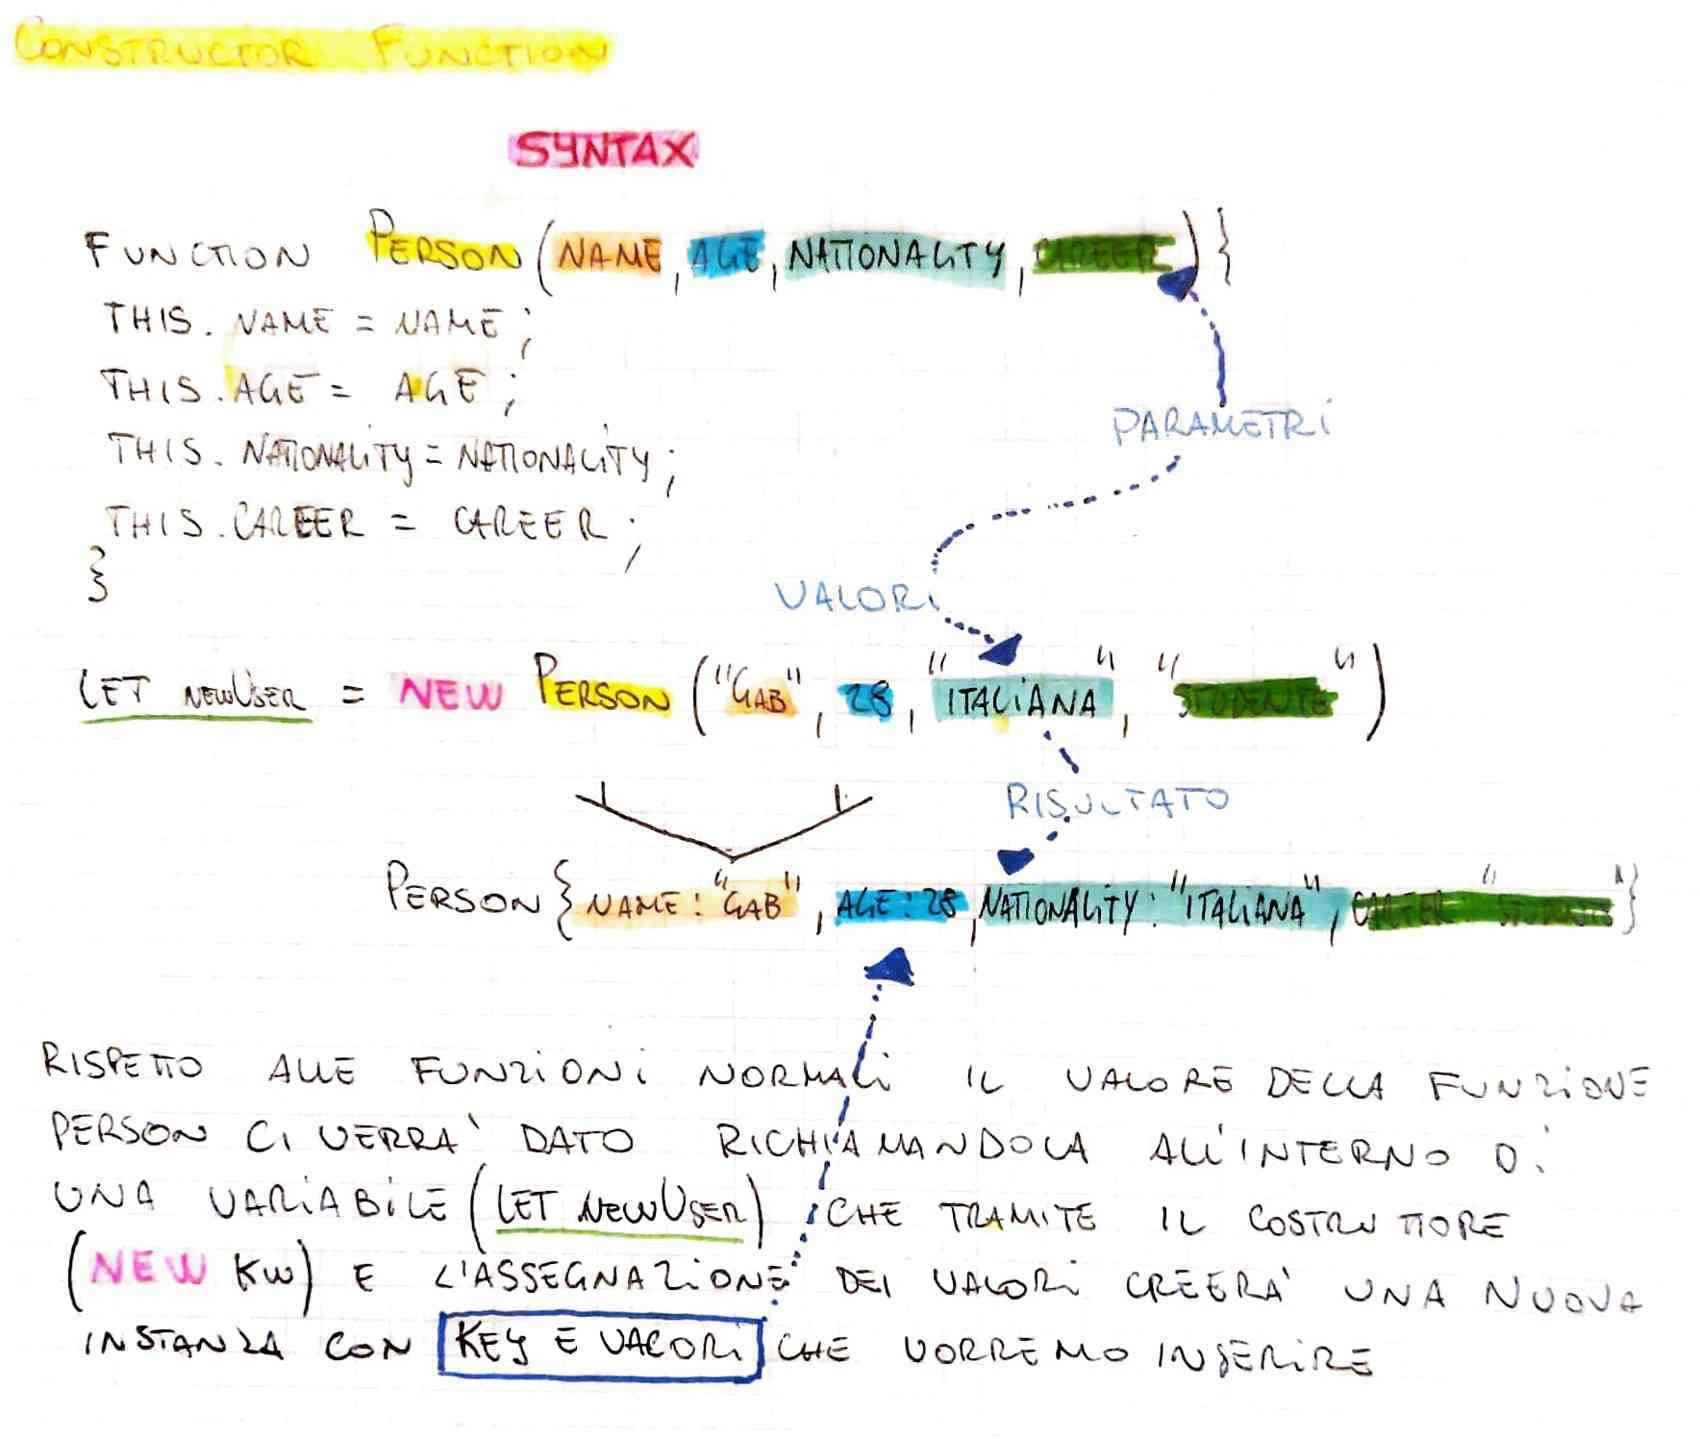 CONSTRUCTOR FUNCTION
SYNTAX
FUNCTION PERSON (NAME, AGE, NATIONALITY, CAREER) {
THIS. NAME = NAME;
THIS. AGE = AGE;
THIS. NATIONALITY = NATIONALITY;
THIS. CAREER = CAREER;
}
PARAMETRI
VALORI
LET NEWUSER = NEW PERSON ("GAB", 28, "ITALIANA", "STUDENTE")
RISULTATO
PERSON { NAME: "GAB", AGE: 28, NATIONALITY: "ITALIANA", CAREER "STUDENTE" }
RISPETTO ALLE FUNZIONI NORMALI IL VALORE DELLA FUNZIONE
PERSON CI VERRA' DATO RICHIAMANDOLA ALL'INTERNO DI
UNA VARIABILE (LET NEWUSER) CHE TRAMITE IL COSTRUTTORE
(NEW KW) E L'ASSEGNAZIONE DEI VALORI CREERA' UNA NUOVA
INSTANZA CON KEY E VALORI CHE VORREMO INSERIRE